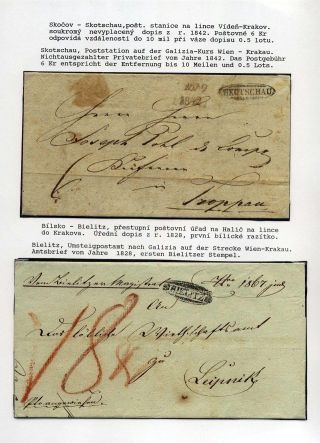 Skočov - Skotschau,pošt. stanice na lince Vídeň-Krakov.
soukromý nevyplacený dopis z r. 1842. Poštovné 6 Kr
odpovídá vzdálenosti do 10 mil při váze dopisu 0.5 lotu.
Skotschau, Poststation auf der Galizia-Kurs Wien - Krakau.
Nichtausgezahlter Privatebrief vom Jahre 1842. Das Postgebühr
6 Kr entspricht der Entfernung bis 10 Meilen und 0.5 Lots.
SKOTSCHAU
Herrn Herrn
Joseph Pohl & Comp
6
Troppau
Bílsko - Bielitz, přestupní poštovní úřad na Halič na lince
do Krakova. Úřední dopis z r. 1828, první bílické razítko.
Bielitz, Umsteigpostamt nach Galizia auf der Strecke Wien-Krakau.
Amtsbrief vom Jahre 1828, ersten Bielitzer Stempel.
Vom Bielitzer Magistrat
BIELITZ
An
Das löbliche Wirthschaftsamt
zu
Leipnik